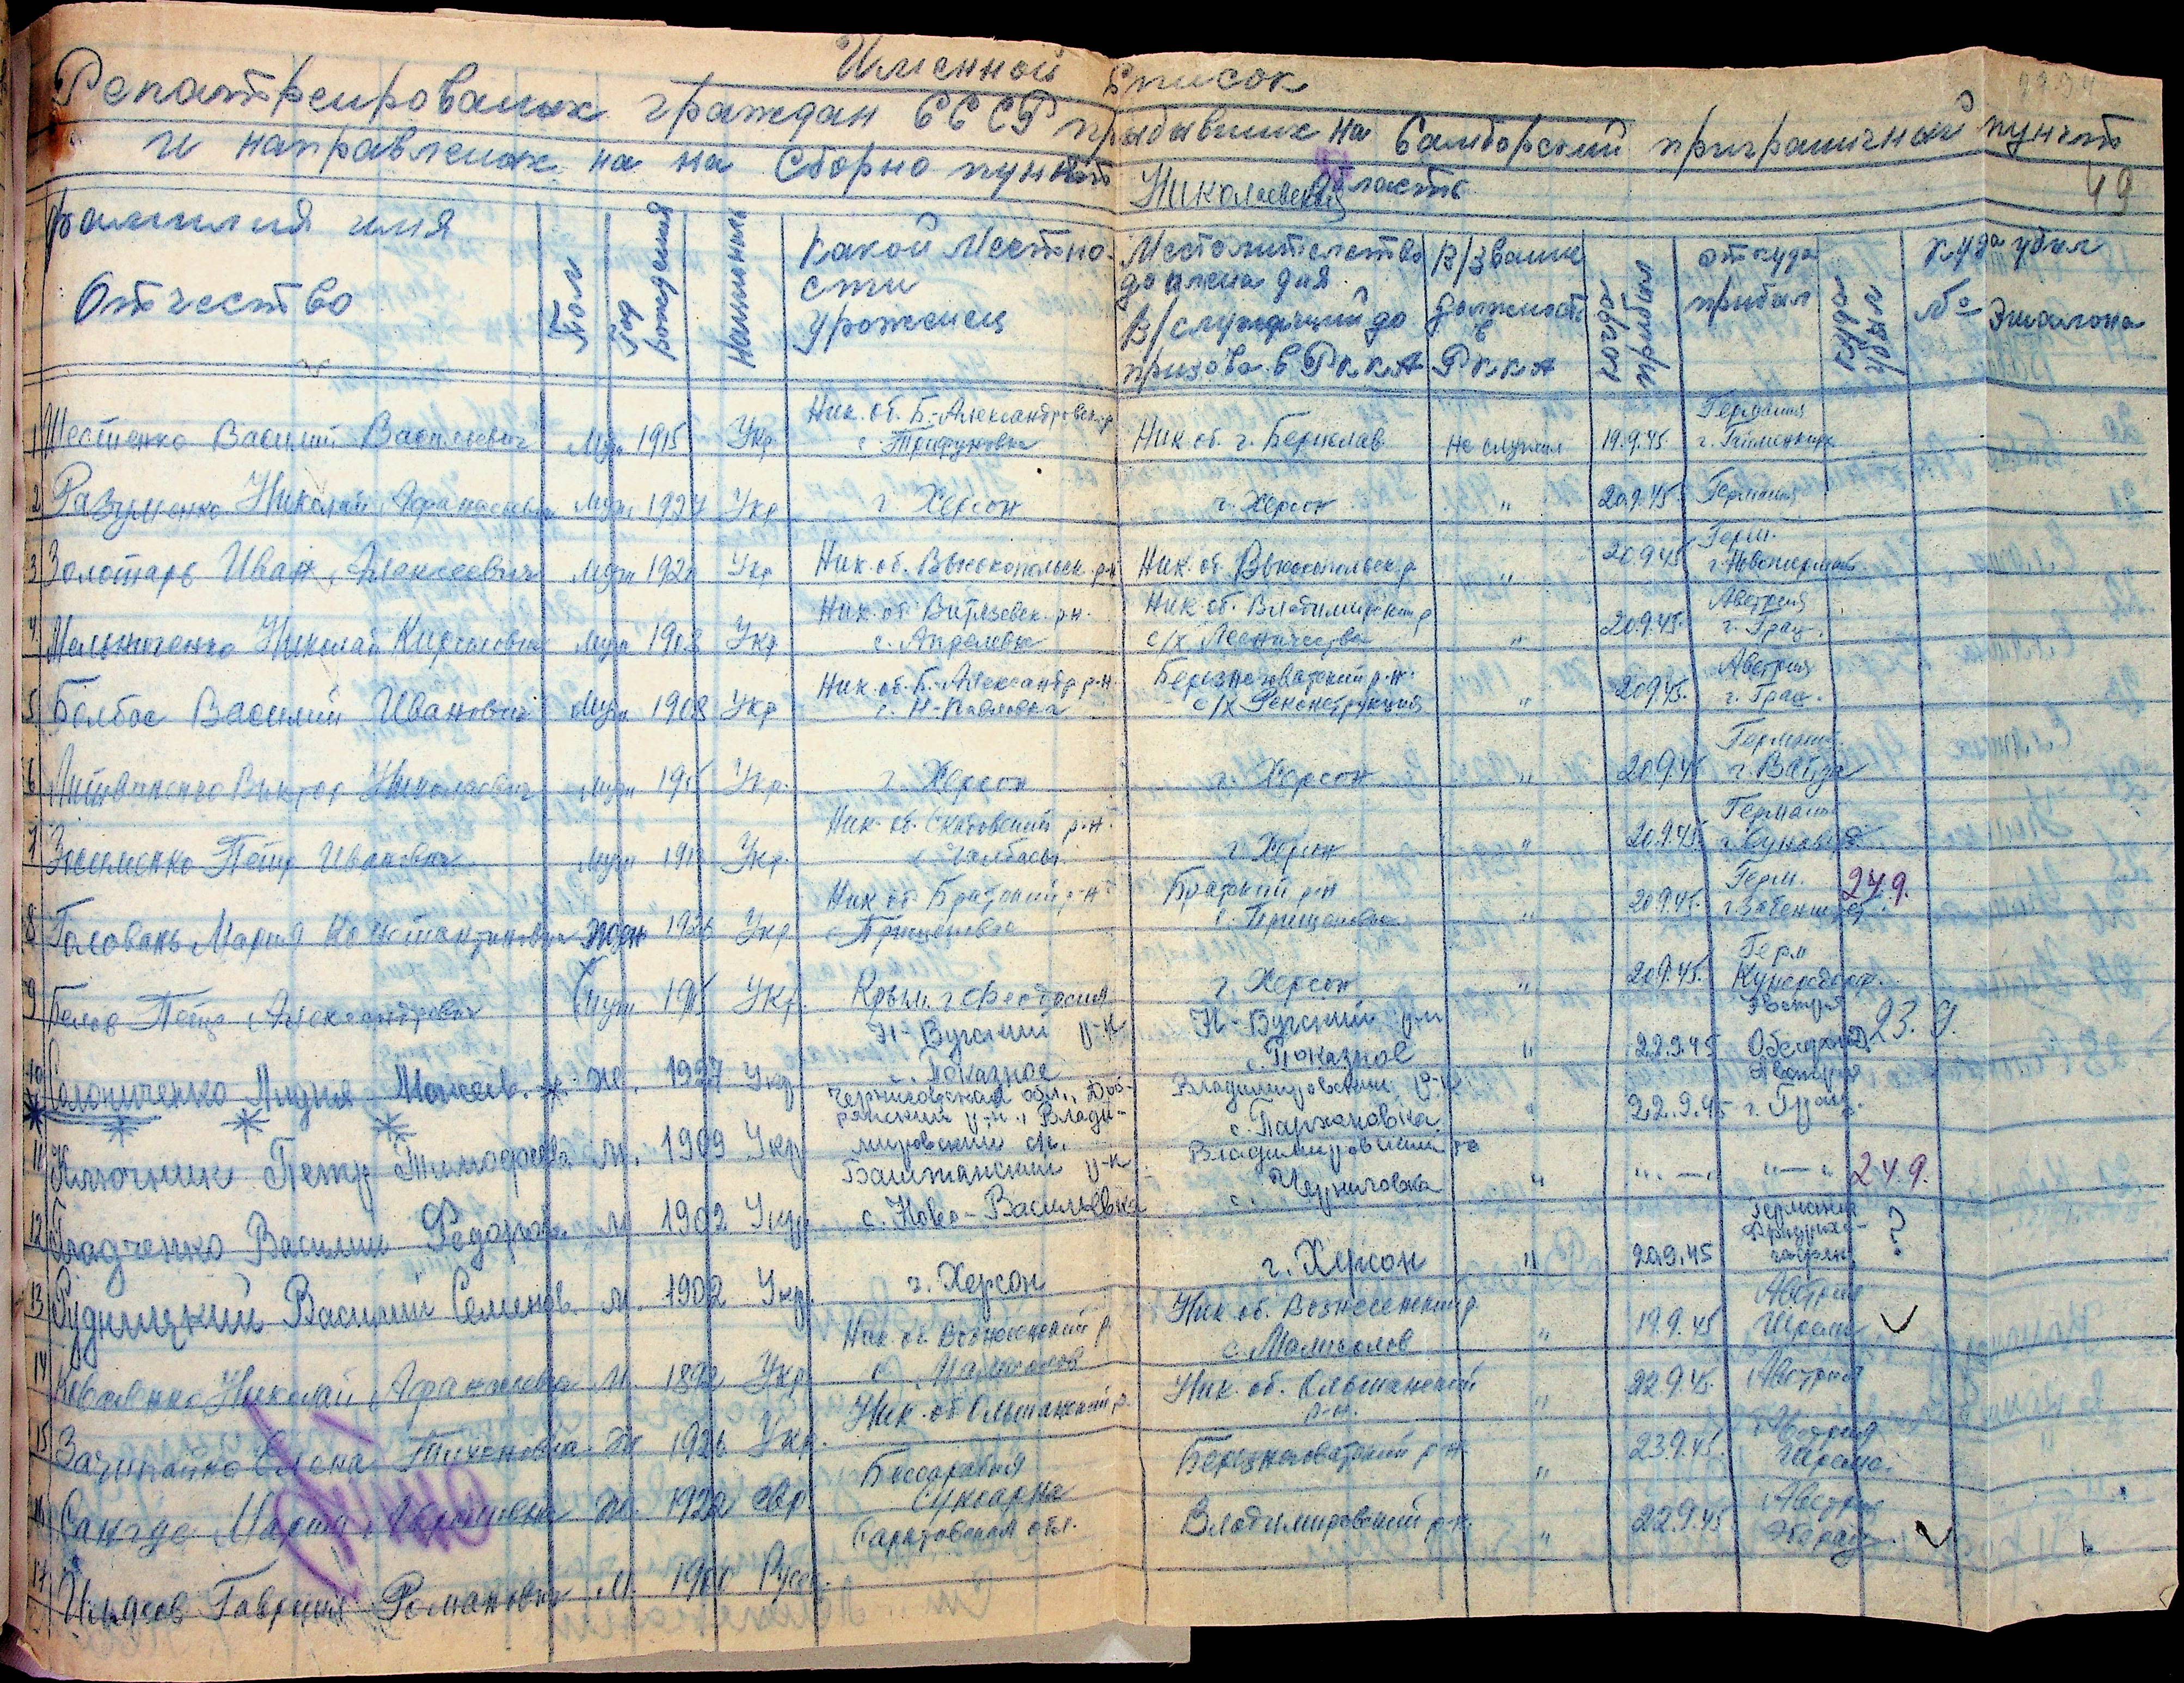 Именной Список
Репатреированых граждан СССР прибывших на Самборский приграничный пункт
и направленых на на сборно пункт Николаевская область
49
фамилия имя
Отчество
Пол
Год рождения
Национал
Какой местно-
сти
уроженец
Местожительство
до плена для
В/служащий до
призова в РККА
В/звание
должность
в
РККА
когда прибыл
откуда
прибыл
куда убыл
куда убыл
№ эшалона
1 Шестенко Василий Васильевич Муж 1915 Укр. Ник. об. Б.-Александровск. р с. Трифуновка Ник об. г. Берислав не служил 19.9.45. Германия г.
2 Разуменко Николай Афанасьевич Муж 1927 Укр г. Херсон г. Херсон " 20.9.45 Германия
3 Золотарь Иван Алексеевич Муж 192 Укр Ник. об. Высокопольск. р-н Ник. об. Высокопольск. р " 20.9.45 Герм.
4 Мельниченко Николай Кириллович Муж 1908 Укр Ник. об. Витязевск. р.н. с. Ник. об. Владимирский р с/х Лесничество " 20.9.45. Австрия г. Грац.
5 Болбос Василий Иванович Муж 1908 Укр Ник. об. Б. Александр р.н. с. Н-Павловка Березнеговатский р.н. с/х Реконструкция " 20.9.45. Австрия г. Грац.
6 Литвиненко Виктор Николаевич Муж 191 Укр. г. Херсон г. Херсон " 20.9.45 Германия г. Вайда
7 Зосименко Пётр Иванович Муж 191 Укр. Ник. об. Скадовский р.н. г. Херсон " 20.9.45. Германия
8 Головань Мария Константиновна Жен 1926 Укр Ник об Братский р-н с Прищеповка Братский р-н с. Прищеповка " 20.9.45. Герм. 24.9.
9 Белов Пётр Александрович Муж 1915 Укр. Крым г. Феодосия г. Херсон " 20.9.45. Герм
10 Солониченко Лидия Моисеев. ж. 1927 Укр Н-Бугский р-н с. Показное Н-Бугский р-н с. Показное " 22.9.45 Австрия 23.9.
11 Ключник Петр Тимофеев. м. 1909 Укр Черниговская обл., Доб-
рянский р-н., Влади-
мировский с/с. Владимировский р-н. с. Пархановка " 22.9.45 Австрия г. Грац.
12 Гладченко Василий Федоров. м 1902 Укр. Баштанский р-н. с. Ново-Васильевка Владимировский р-н с. Черниговка " "-" "-" 24.9.
13 Рудницкий Василий Семенов. м. 1902 Укр. г. Херсон г. Херсон " 20.9.45 Германия Фридрихс-
гафен ?
14 Коваленко Николай м. 1892 Укр Ник. об. Вознесенский р. Ник. об. Вознесенский р. " 19.9.45 Австрия
15 Елена Тихоновна ж 1926 Укр. Ник. об Ольшанский р. Ник. об. Ольшанский р-н. " 22.9.45. Австрия
16 Мария ж. 1922 евр Бессарабия Березнеговатский р-н " 23.9.45. Австрия
17 Ильясов Гавриил Романович м. 19 Русс. Саратовская обл. Владимировский р-н. " 22.9.45 Австрия